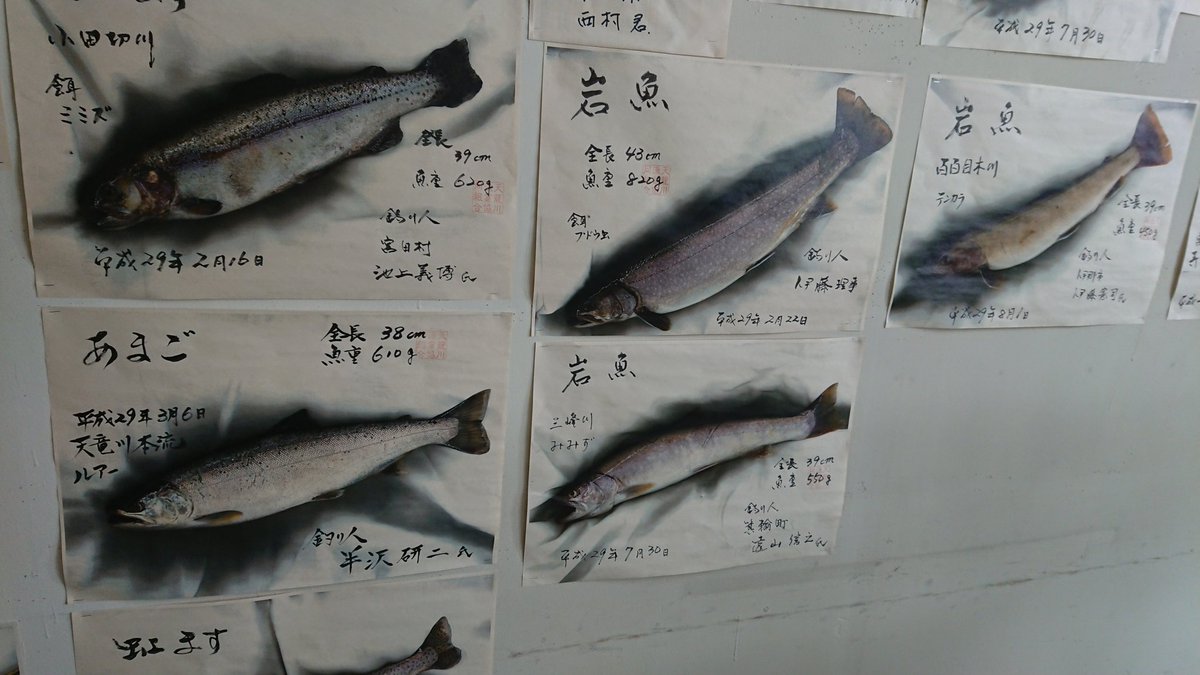 小田切川
餌
ミミズ
全長
39cm
魚重 620g
釣り人
宮田村
池上義博氏
平成29年2月16日
西村君
平成29年7月30日
岩魚
全長 43cm
魚重 820g
餌
ブドウ虫
釣り人
伊藤理
平成29年2月22日
岩魚
百百目木川
テンカラ
全長39cm
魚重450g
釣り人
伊那市
平成29年8月1日
あまご
全長 38cm
魚重 610g
平成29年3月6日
天竜川本流
ルアー
釣り人
半沢研二氏
岩魚
三峰川
みみず
全長 39cm
魚重 550g
釣り人
箕輪町
平成29年7月30日
虹ます